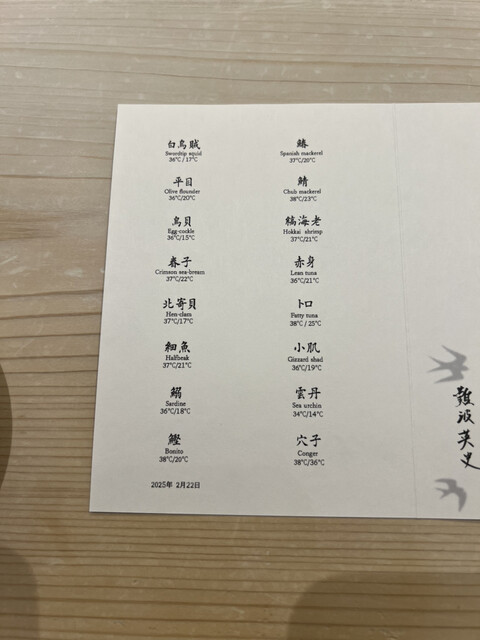 白烏賊
Swordtip squid
36℃/17℃
平目
Olive flounder
36℃/20℃
鳥貝
Egg-cockle
36℃/15℃
春子
Crimson sea-bream
37℃/22℃
北寄貝
Hen-clam
37℃/17℃
細魚
Halfbeak
37℃/21℃
鰯
Sardine
36℃/18℃
鰹
Bonito
38℃/20℃
2025年 2月22日
鰆
Spanish mackerel
37℃/20℃
鯖
Chub mackerel
38℃/23℃
縞海老
Hokkai shrimp
37℃/21℃
赤身
Lean tuna
36℃/21℃
トロ
Fatty tuna
38℃ / 25℃
小肌
Gizzard shad
36℃/19℃
雲丹
Sea urchin
34℃/14℃
穴子
Conger
38℃/36℃
難波英史